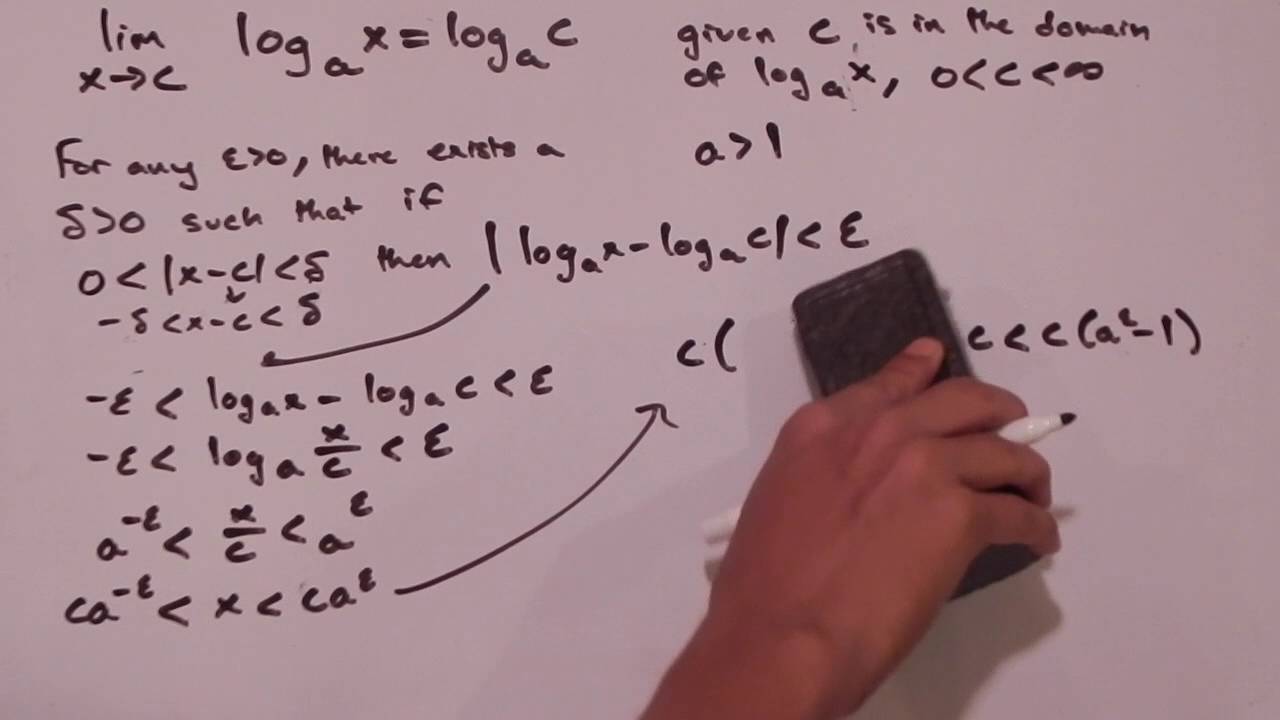 lim x→c logₐ x = logₐ c
given c is in the domain
of logₐ x, 0 < c < ∞
a > 1
For any ε>0, there exists a
δ>0 such that if
0 < |x-c| < δ then |logₐ x - logₐ c| < ε
-δ < x-c < δ
c( c < c(a^ε-1)
-ε < logₐ x - logₐ c < ε
-ε < logₐ x/c < ε
a^-ε < x/c < a^ε
ca^-ε < x < ca^ε